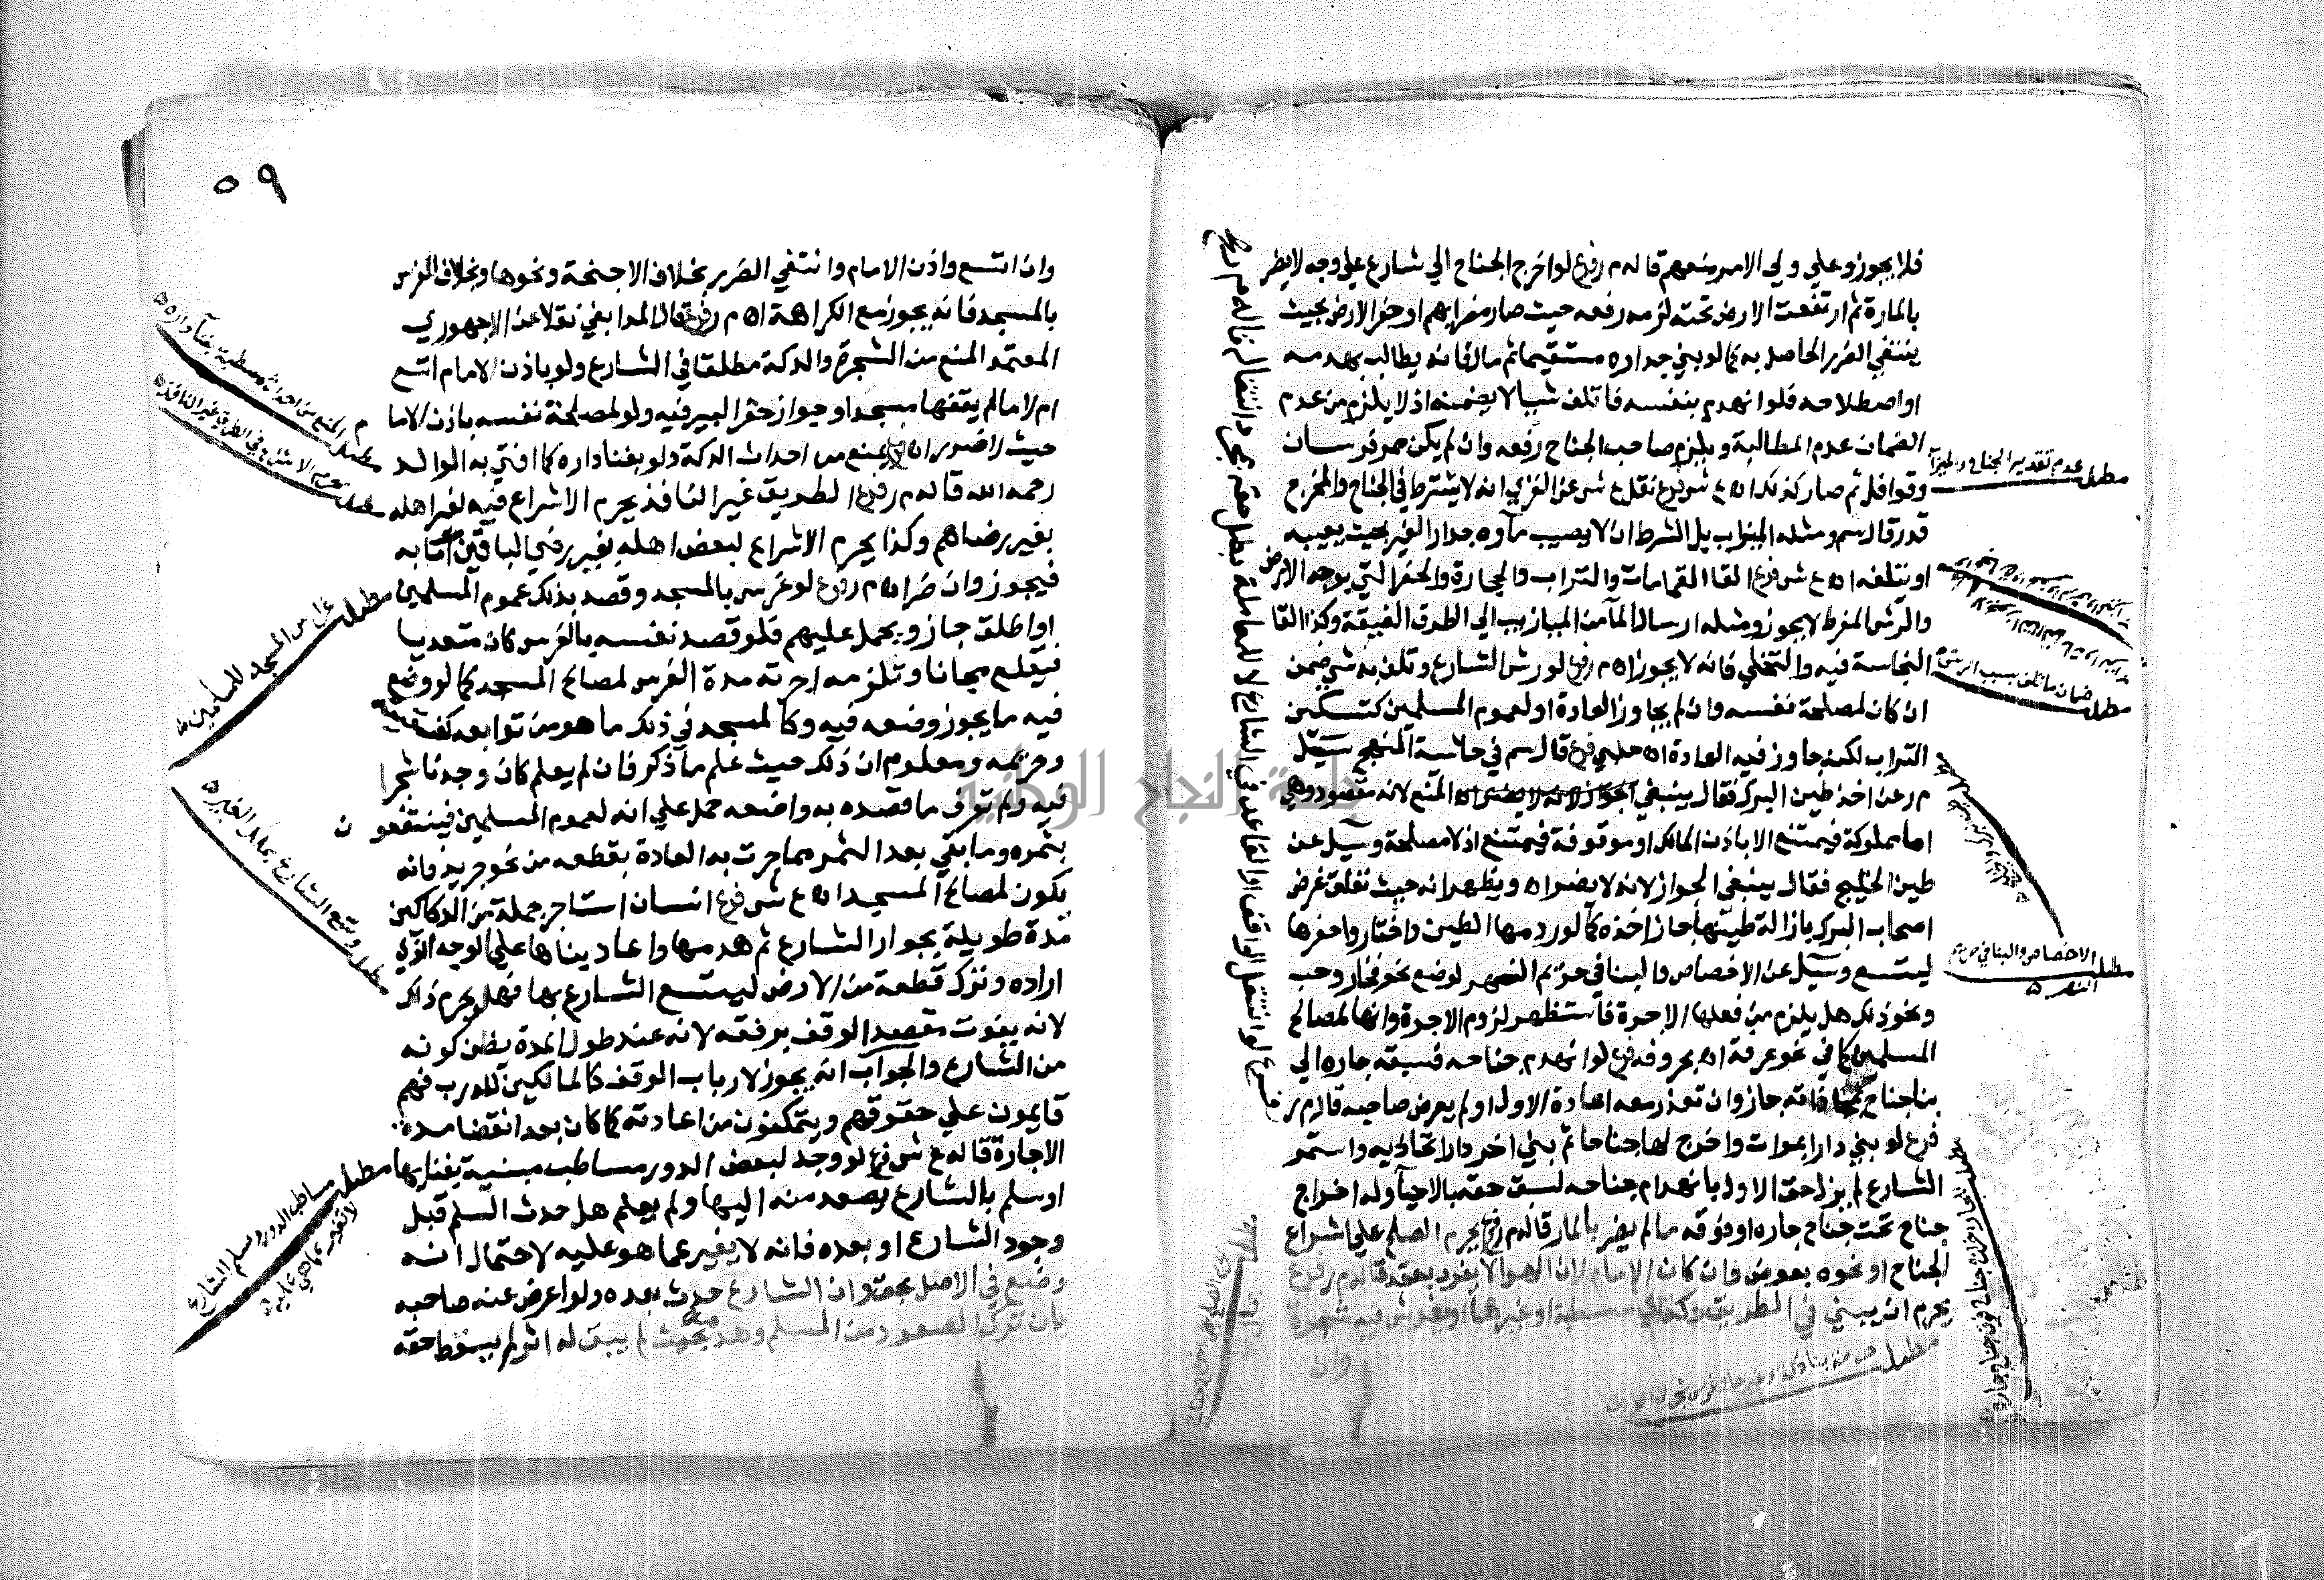 فلا يجوز وعلي ولي الامر منعهم قاله م ر فرع لو اخرج الجناح الي شارع علي وجه لا يضر
بالمارة ثم ارتفعت الارض تحته لزمه رفعه حيث صار مضرا بهم او حفر الارض بحيث
ينتفي الضرر الحاصل به كما لو بني جداره مستقيما ثم مال فانه يطالب بهدمه
او اصلاحه فلو انهدم بنفسه فاتلف شيا لا يضمنه اذ لا يلزم من عدم
الضمان عدم المطالبة ويلزم صاحب الجناح رفعه وان لم يكن ممر فرسان
وقوافل ثم صار كذلك اه ع ش فرع نقل ع ش عن الغزي انه لا يشترط في الجناح والمخرج
قدر قال سم ومثله الميزاب بل الشرط ان لا يصيب ماوه جدار الغير بحيث يعيبه
او يتلفه اه ع ش فرع القا القمامات والتراب والحجارة والحفر التي بوجه الارض
والرش المفرط لا يجوز ومثله ارسال المآ من الميازيب الي الطرق الضيقة وكذا القا
النجاسة فيه والتخلي فانه لا يجوز اه م ر فرع لو رش الشارع وتلف به شي ضمن
ان كان لمصلحة نفسه وان لم يجاوز العادة او لعموم المسلمين كتسكين
التراب لكنه جاوز فيه العادة اه حلبي فرع قال سم في حاشية المنهج سيل
م ر عن اخذ طين البرك فقال ينبغي المنع لانه مقصود وهي
اما مملوكة فيمتنع الا باذن المالك او موقوفة فيمتنع اذ لا مصلحة وسيل عن
طين الخليج فقال ينبغي الجواز لانه لا يضر اه ويظهر انه حيث تعلق غرض
اصحاب البرك بازالة طينها جاز اخذه كما لو ردمها الطين واختاروا حفرها
ليتسع وسيل عن الاخصاص والبنا في حريم النهر لوضع نحو فخار وحب
ونحو ذلك هل يلزم من فعلها الاجرة فاستظهر لزوم الاجرة وانها لمصالح
المسلمين كما في نحو عرفة اه بحروفه فرع لو انهدم جناحه فسبقه جاره الي
بنا جناح بمحاذاته جاز وان تعذر معه اعادة الاول او لم يعرض صاحبه قاله م ر
فرع لو بني دارا بموات واخرج لها جناحا ثم بني اخر دارا تحاذيه واستمر
الشارع لم يزل حق الاول بانهدام جناحه لسبق حقه بالاحيآ وله اخراج
جناح تحت جناح جاره او فوقه ما لم يضر بالمار قاله م ر فرع يحرم الصلح علي اشراع
الجناح او نحوه بعوض وان كان الامام لان الهوا لا يفرد بعقد قاله م ر فرع
يحرم ان يبني في الطريق دكة اي مسطبة او غيرها او يغرس فيه شجرة
وان
مطلب عدم تقدير الجناح والميزآ
مطلب ضمان ما تلف بسبب الرش
مطلب الاخصاص والبنا في حريم
النهر
٥٩
وان اتسع واذن الامام وانتفي الضرر بخلاف الاجنحة ونحوها وبخلاف الغرس
بالمسجد فانه يجوز مع الكراهة اه م ر فرع قال المدابغي نقلا عن الاجهوري
المعتمد المنع من الشجرة والدكة مطلقا في الشارع ولو باذن الامام اتسع
ام لا ما لم يقفها مسجدا وجواز حفر البير فيه ولو لمصلحة نفسه باذن الاما
حيث لا ضرر اه فرع يمنع من احداث الدكة ولو بفنا داره كما افتي به الوالد
رحمه الله قاله م ر فرع الطريق غير النافذ يحرم الاشراع فيه لغير اهله
بغير رضاهم وكذا يحرم الاشراع لبعض اهله بغير رضي الباقين اما به
فيجوز وان ضر اه م ر فرع لو غرس بالمسجد وقصد بذلك عموم المسلمين
او اطلق جاز ويحمل عليهم فلو قصد نفسه بالغرس كان متعديا
فيقلع مجانا وتلزمه اجرته مدة الغرس لمصالح المسجد كما لو وضع
فيه ما يجوز وضعه فيه وكالمسجد في ذلك ما هو من توابعه كفسقيته
وحريمه ومعلوم ان ذلك حيث علم ما ذكر فان لم يعلم كان وجدنا شجرا
فيه ولم نعرف ما قصده به واضعه حمل علي انه لعموم المسلمين فينتفعون
بثمره وما بقي بعد الثمر مما جرت به العادة بقطعه من نحو جريد فانه
يكون لمصالح المسجد اه ع ش فرع انسان استاجر جملة من الدكاكين
مدة طويلة بجوار الشارع ثم هدمها واعاد بناها علي الوجه الذي
اراده وترك قطعة من الارض ليتسع الشارع بها فهل يحرم ذلك
لانه يفوت مقصد الوقف برفقه لانه عند طول المدة يظن كونه
من الشارع والجواب انه يجوز لارباب الوقف كالمالكين للدرب فهم
قايمون علي حقوقهم ويتمكنون من اعادته كما كان بعد انقضا مدة
الاجارة قاله ع ش فرع لو وجد لبعض الدور مساطب مبنية بفنايها
او سلم بالشارع يصعد منه اليها ولم يعلم هل حدث السلم قبل
وجود الشارع او بعده فانه لا يغير عما هو عليه لاحتمال انه
وضع في الاصل بحق وان الشارع حدث بعده ولو اعرض عنه صاحبه
بان ترك الصعود من السلم وهدمه بحيث لم يبق له اثر لم يسقط حقه
مطلب غراس المسجد للمسلمين
مطلب مساطب الدور وسلم الشارع
لا تغير عما هي عليه
جامعة النجاح الوطنية